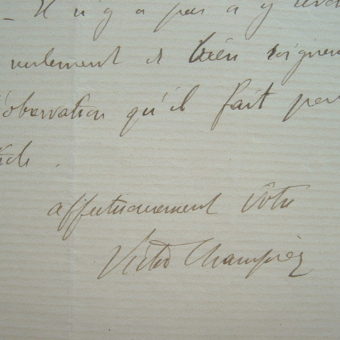 - Il n'y a pas à y
seulement de bien soigner
l'observation qu'il fait
affectueusement vôtre
Victor Champier